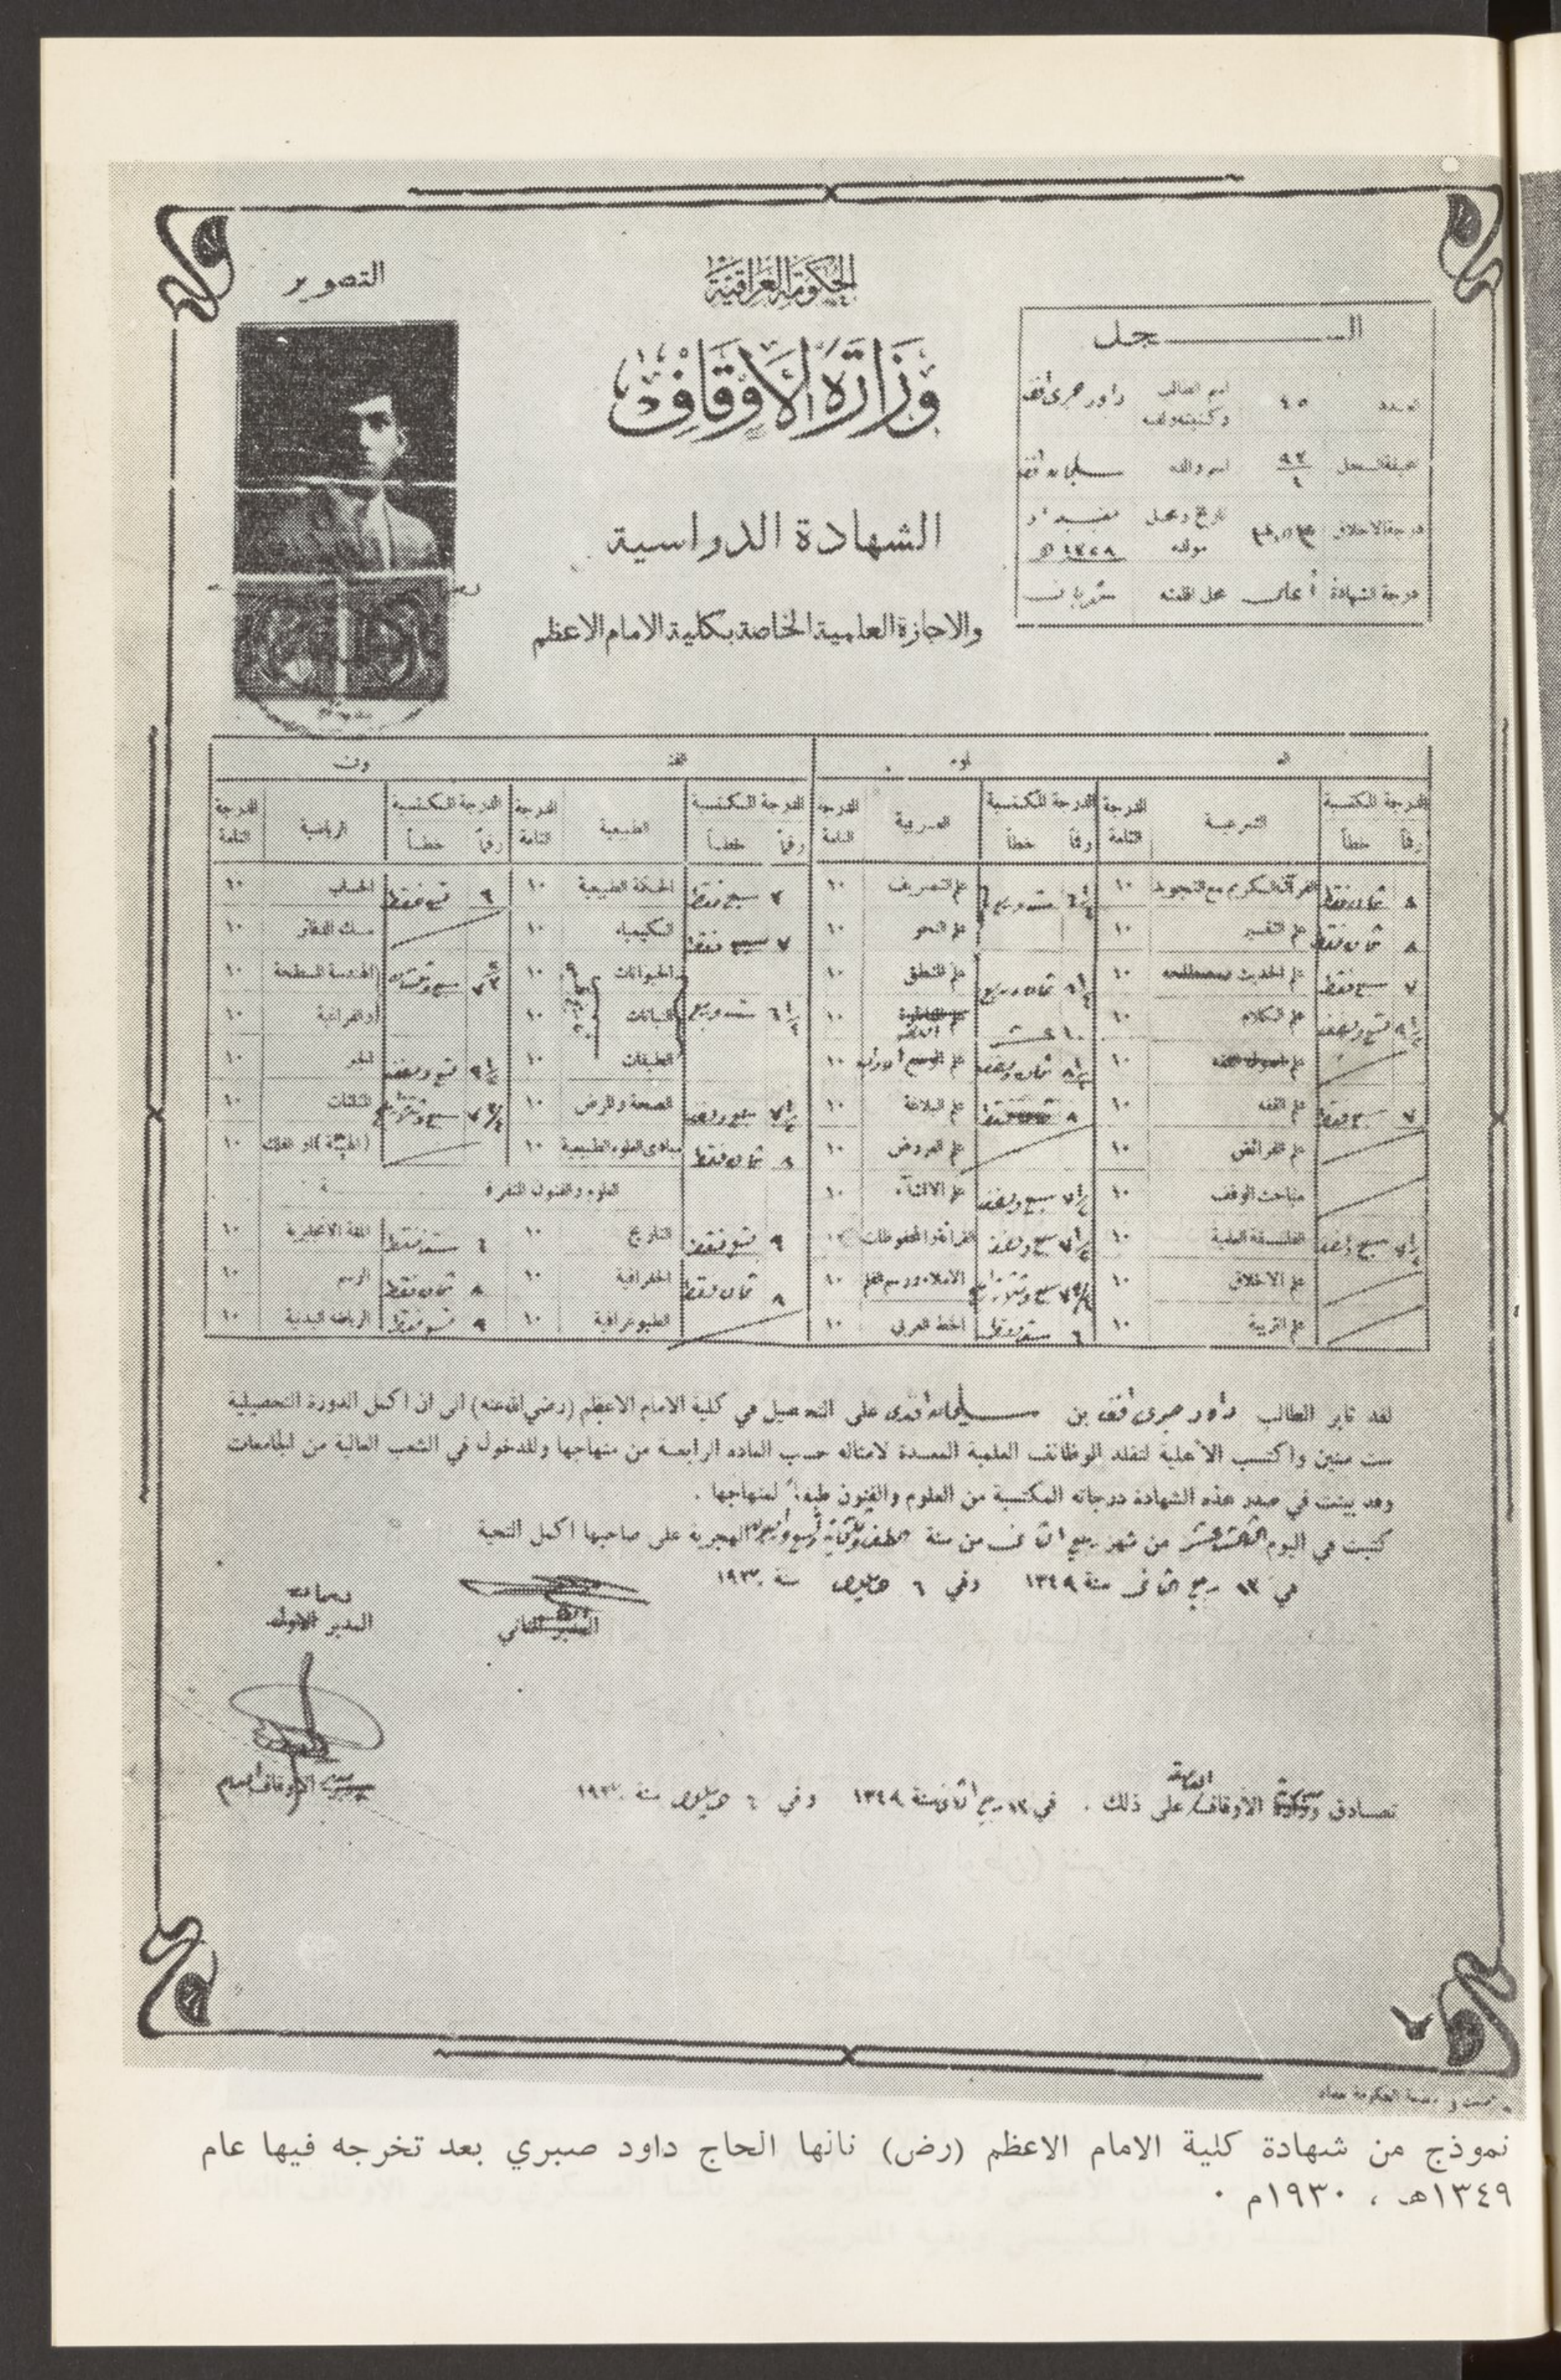 الحكومة العراقية
وزارة الأوقاف
الشهادة الدراسية
والاجازة العلمية الخاصة بكلية الامام الاعظم
التصوير
السجل
العدد ٤٥ اسم الطالب وكنيته ولقبه داود صبري افندي
صحيفة السجل اسم والده سليمان افندي
درجة الاخلاق تاريخ ومحل مولده بغداد
درجة الشهادة أعلى محل اقامته
العلوم
الفنون
الدرجة المكتسبة الشرعية الدرجة التامة الدرجة المكتسبة العربية الدرجة التامة الدرجة المكتسبة الطبيعية الدرجة التامة الدرجة المكتسبة الرياضية الدرجة التامة
رقماً خطاً رقماً خطاً رقماً خطاً رقماً خطاً
٨ ثمان فقط القرآن الكريم مع التجويد ١٠ ٦ ١/٤ ست وربع علم التصريف ١٠ ٧ سبع فقط الحكمة الطبيعية ١٠ ٩ تسع فقط الحساب ١٠
٨ ثمان فقط علم التفسير ١٠ علم النحو ١٠ ٧ سبع فقط الكيمياء ١٠ مسك الدفاتر ١٠
٧ سبع فقط علم الحديث ١٠ ثمان وربع علم المنطق ١٠ الحيوانات ١٠ الهندسة المسطحة ١٠
٩ ١/٢ تسع ونصف علم الكلام ١٠ ١٠ عشر ١٠ ٦ ١/٤ ست وربع النباتات ١٠ والفراغية ١٠
١٠ ٨ ١/٢ ثمان ونصف علم ١٠ الطبقات ١٠ ٩ ١/٢ تسع ونصف الجبر ١٠
٧ سبع فقط علم الفقه ١٠ ٨ علم البلاغة ١٠ ٧ ١/٢ سبع ونصف الصحة والمرض ١٠ المثلثات ١٠
علم الفرائض ١٠ علم العروض ١٠ ٨ ثمان فقط مبادئ العلوم الطبيعية ١٠ (الهيئة) او الفلك ١٠
مباحث الوقف ١٠ ٧ ١/٢ سبع ونصف علم الانشاء ١٠ العلوم والفنون المتفرقة
٧ ١/٢ سبع ونصف الفلسفة العلمية ١٠ ٧ ١/٢ سبع ونصف القراءة والمحفوظات ١٠ ٩ تسع فقط التاريخ ١٠ ٦ ست فقط اللغة الانجليزية ١٠
علم الاخلاق ١٠ الاملاء ورسم القلم ١٠ ٨ ثمان فقط الجغرافية ١٠ ٨ ثمان فقط الرسم ١٠
علم التربية ١٠ ٦ ست فقط الخط العربي ١٠ الطبوغرافية ١٠ ٩ تسع فقط الرياضة البدنية ١٠
لقد ثابر الطالب داود صبري افندي بن سليمان افندي على التحصيل في كلية الامام الاعظم (رضي الله عنه) الى ان اكمل الدورة التحصيلية
ست سنين واكتسب الأهلية لتقلد الوظائف العلمية المعدة لامثاله حسب المادة الرابعة من منهاجها وللدخول في الشعب العالية من الجامعات
وقد بينت في صدر هذه الشهادة درجاته المكتسبة من العلوم والفنون طبقاً لمنهاجها .
كتبت في اليوم الثالث عشر من شهر ربيع الثاني من سنة الف وثلثمائة وتسع واربعين الهجرية على صاحبها اكمل التحية
في ١٣ ربيع الثاني سنة ١٣٤٩ وفي ٦ ايلول سنة ١٩٣٠
المدير الثاني
المدير الاول
تصادق الأوقاف على ذلك . في ١٣ ربيع الثاني سنة ١٣٤٩ وفي ٦ ايلول سنة ١٩٣٠
الاوقاف العام
نموذج من شهادة كلية الامام الاعظم (رض) نانها الحاج داود صبري بعد تخرجه فيها عام
١٣٤٩هـ ، ١٩٣٠م ٠